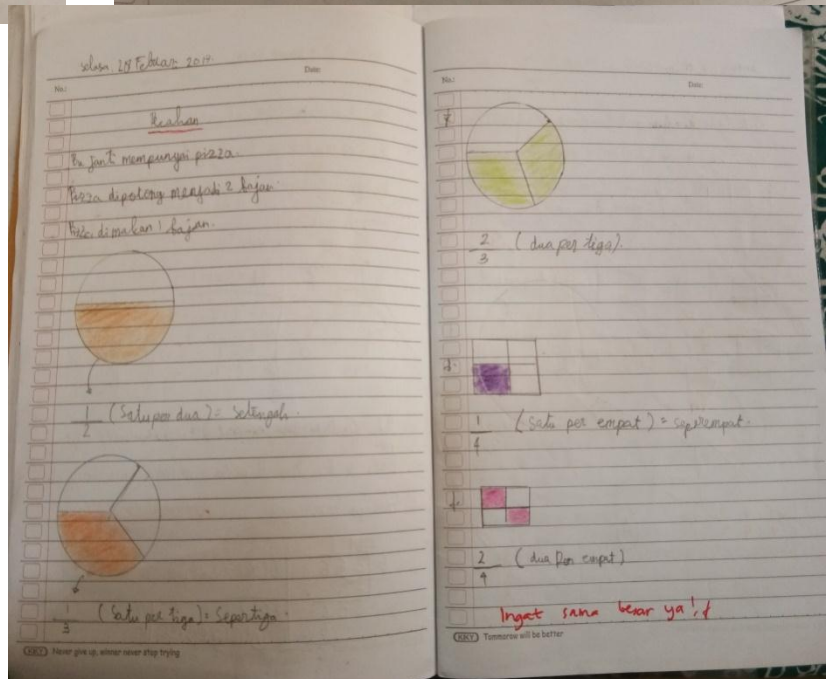 Selasa, 28 Februari 2017.
No.:
Date:
Pecahan
Bu Janti mempunyai pizza.
Pizza dipotong menjadi 2 bajian.
dimakan 1 bajian.
1/2 (Satu per dua) = Setengah.
1/3 (Satu per tiga) = Sepertiga.
KKY Never give up, winner never stop trying
No.:
Date:
2/3 (dua per tiga).
1/4 (satu per empat) = seperempat.
2/4 (dua per empat)
Ingat sama besar ya!
KKY Tommorow will be better